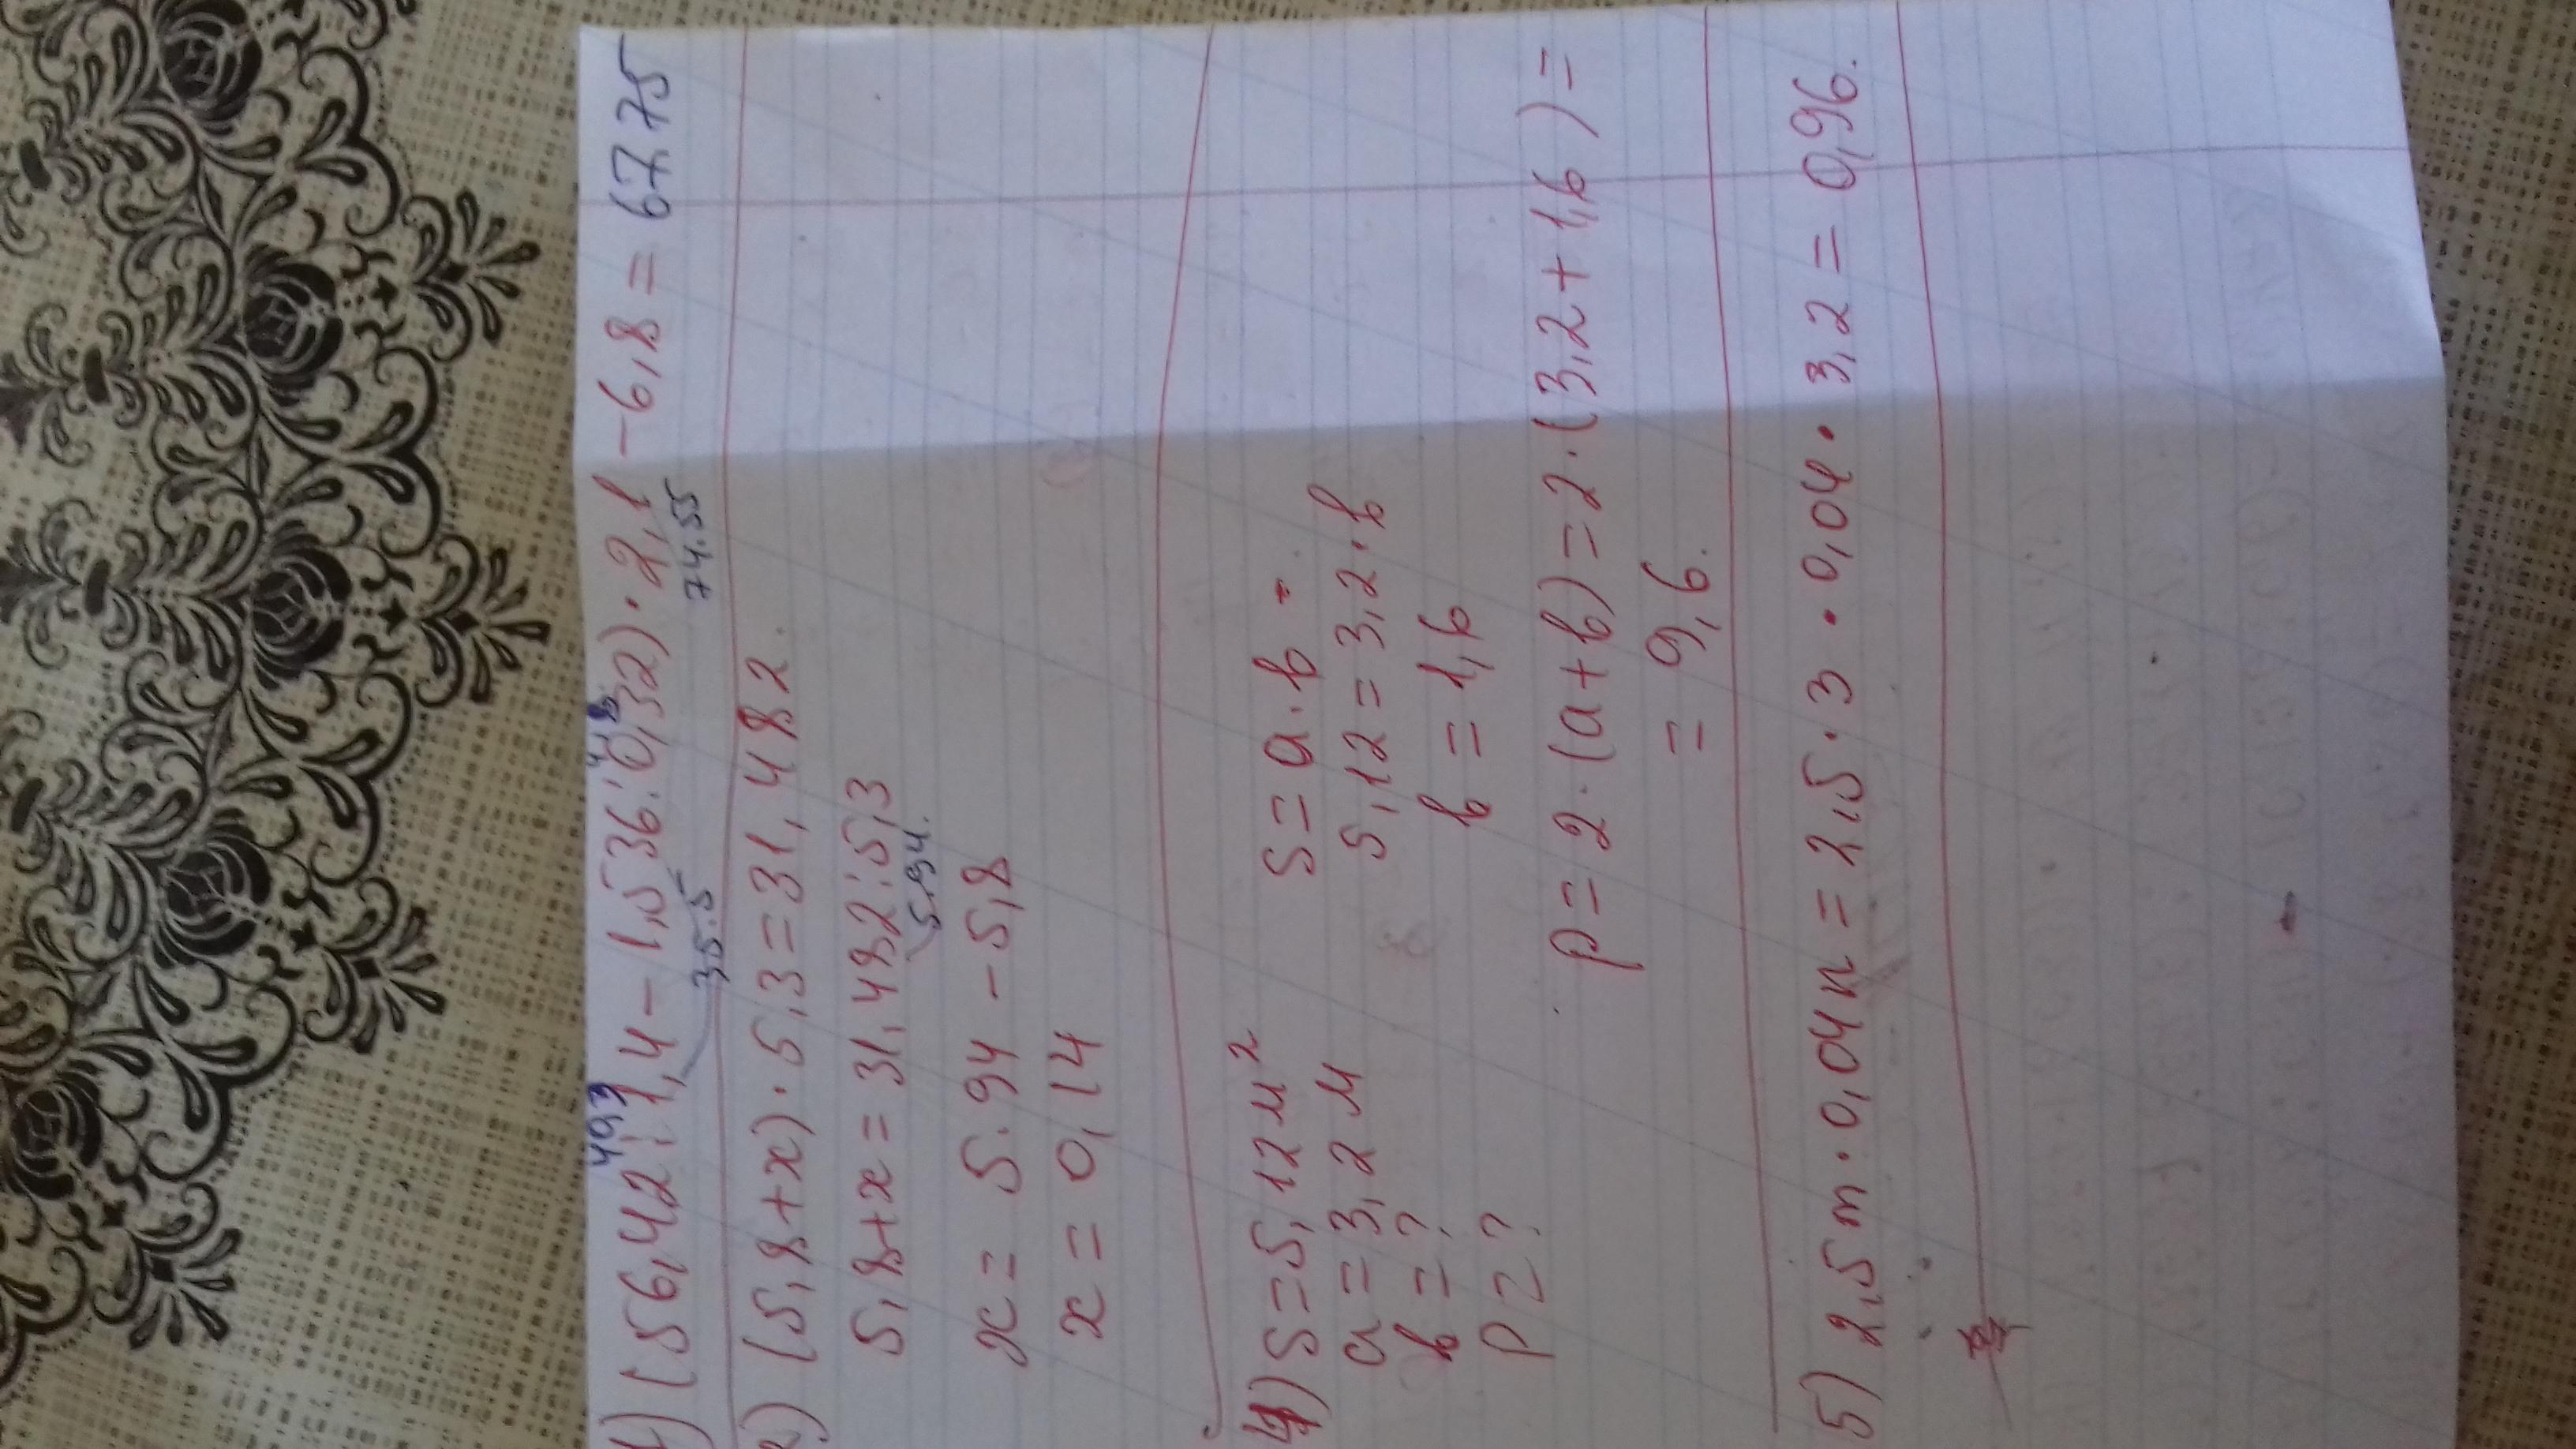 40,3 4,8
1) (56,42 : 1,4 - 1,536 : 0,32) · 2,1 - 6,8 = 67,75
35.5 74.55
2) (5,8+x) · 5,3 = 31,482.
5,8+x = 31,482 : 5,3
5.94.
x = 5.94 - 5,8
x = 0,14
4) S = 5,12 м² S = a·b
a = 3,2 м 5,12 = 3,2·b
b = ? b = 1,6
P = ?
P = 2·(a+b) = 2·(3,2+1,6) =
= 9,6.
5) 2,5m · 0,04n = 2,5 · 3 · 0,04 · 3,2 = 0,96.